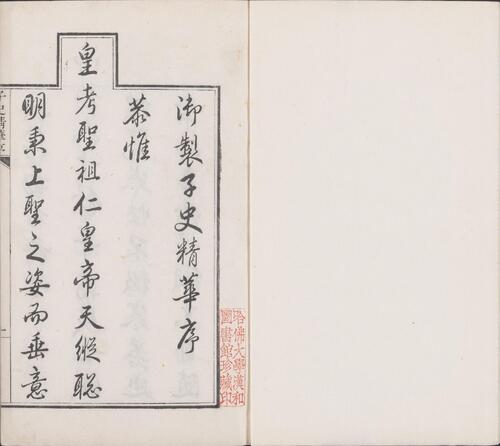 御製子史精華序
恭惟
皇考聖祖仁皇帝天縱聰
明秉上聖之姿而垂意
子史精華序
一
哈佛大學漢和
圖書館珍藏印